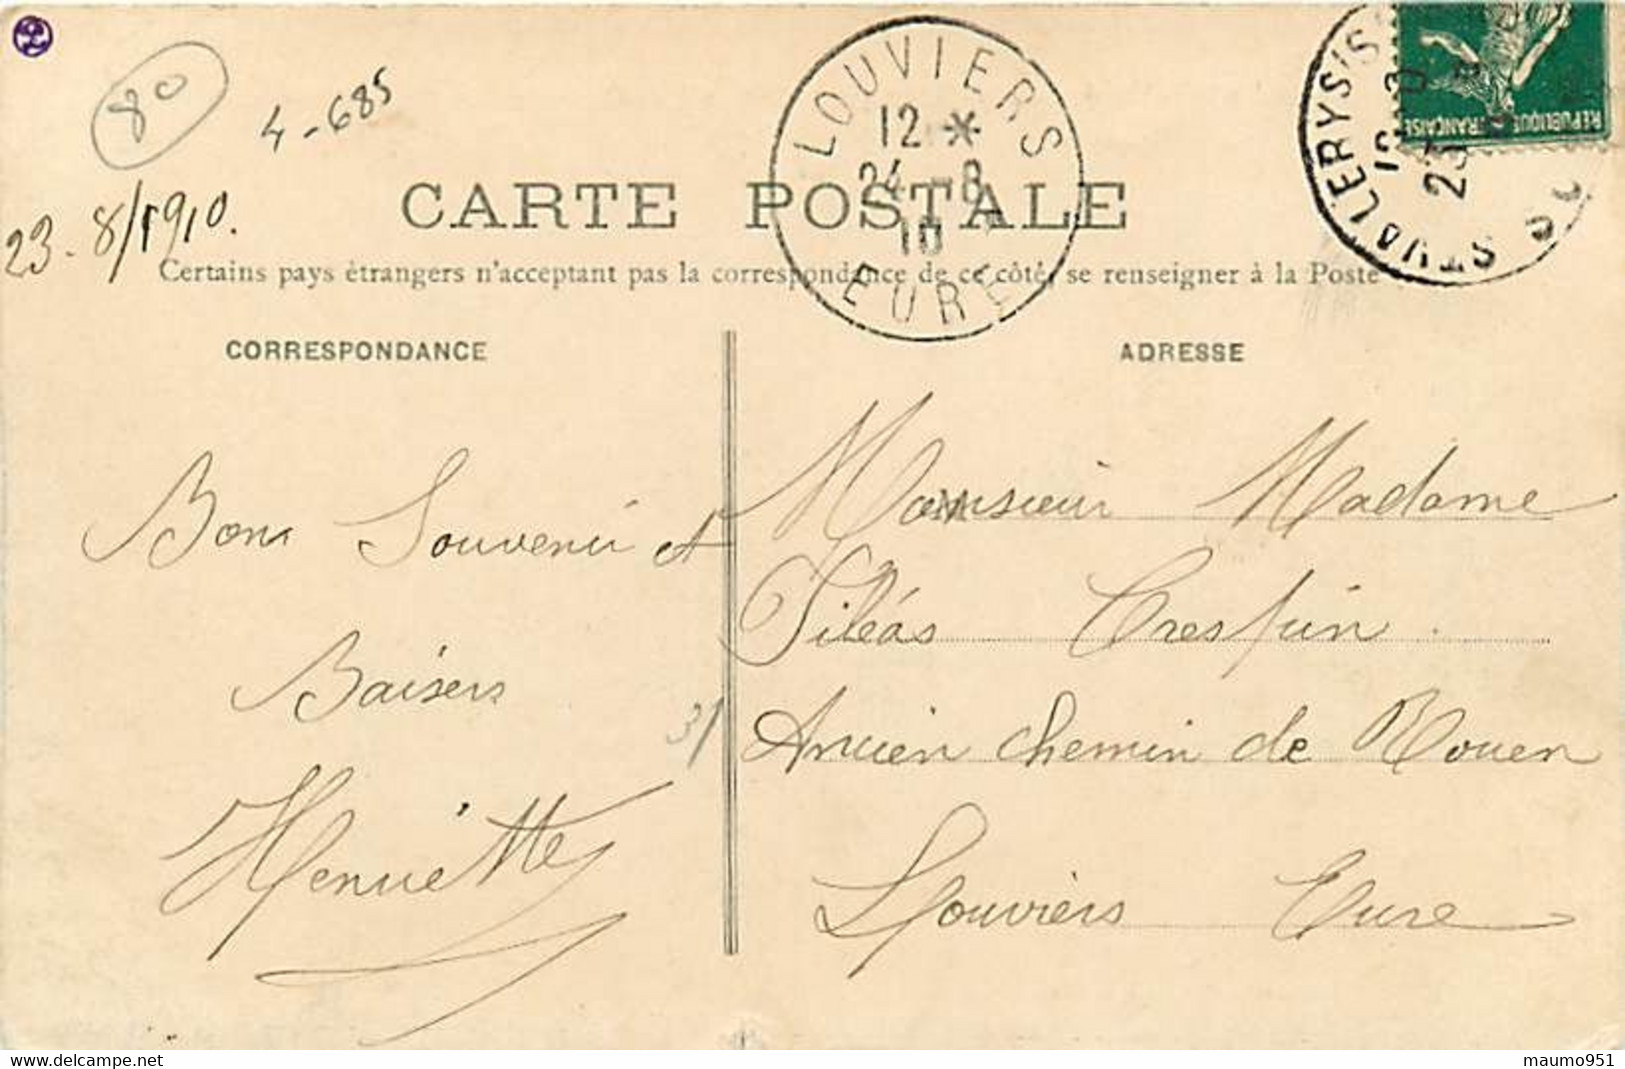 80
4-685
23-8/1910.
LOUVIERS
12 *
24 -8
10
EURE
ST VALERY S/S
23
REPUBLIQUE FRANÇAISE
CARTE POSTALE
Certains pays étrangers n'acceptant pas la correspondance de ce côté, se renseigner à la Poste
CORRESPONDANCE
ADRESSE
Bons Souvenir et
Baisers
Henriette
31
Monsieur Madame
Siléas Crespin.
Ancien Chemin de Rouen
Louviers Eure
maumo951